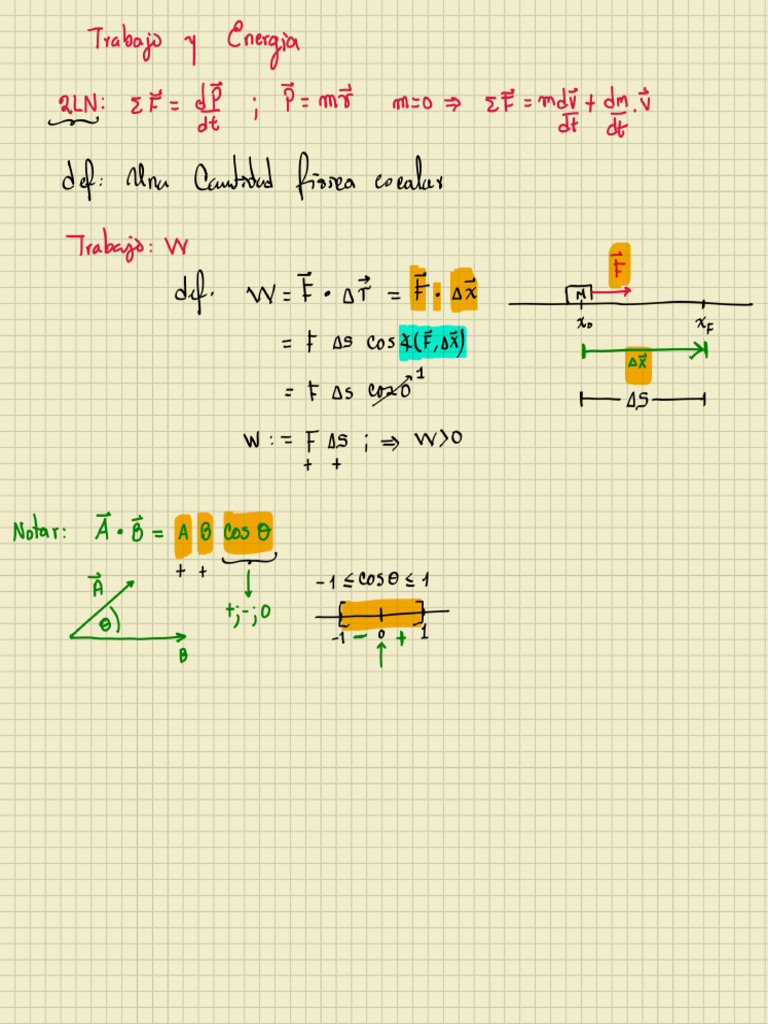 Trabajo y Energia
2LN: Σ F⃗ = dP⃗/dt ; P⃗ = mr⃗ m=0 ⇒ ΣF⃗ = m dv⃗/dt + dm/dt . v⃗
def: Una Cantidad física escalar
Trabajo: W
def. W = F⃗ • Δr⃗ = F⃗ • Δx⃗
= F Δs cos ∡(F⃗, Δx⃗)
= F Δs cos 0 1
W := F Δs ; ⇒ W>0
+ +
F⃗
M
x₀ x_F
Δx⃗
ΔS
Notar: A⃗ • B⃗ = A B cos θ
+ +
+;-;0
A⃗
θ
B
-1 ≤ cos θ ≤ 1
-1 - 0 + 1